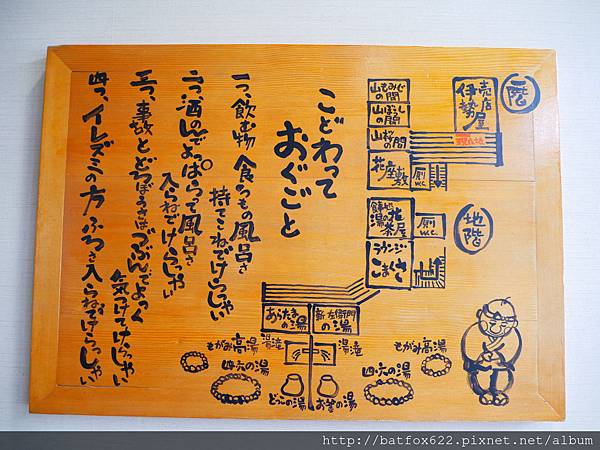 一階
売店
伊勢屋
現在地
山もみじの間
山ぼうしの間
山桜の間
花座敷
厠
W.C.
地階
湯の花茶屋
厠
W.C.
ラウンジ
こまくさ
新左衛門の湯
あらたまの湯
湯滝
湯滝
もがみ高湯
もがみ高湯
四六の湯
四六の湯
お釜の湯
どっこの湯
こどわって
おぐごと
一つ、飲む物 食うもの風呂さ
持てこねでけらっしゃい
二つ、酒のんでよっぱらって風呂さ
入らねでけらっしゃい
三つ、事故とどろぼうさはずぶんでよっく
気つけてけらっしゃい
四つ、イレズミの方 ふろさ入らねでけらっしゃい
http://batfox622.pixnet.net/album